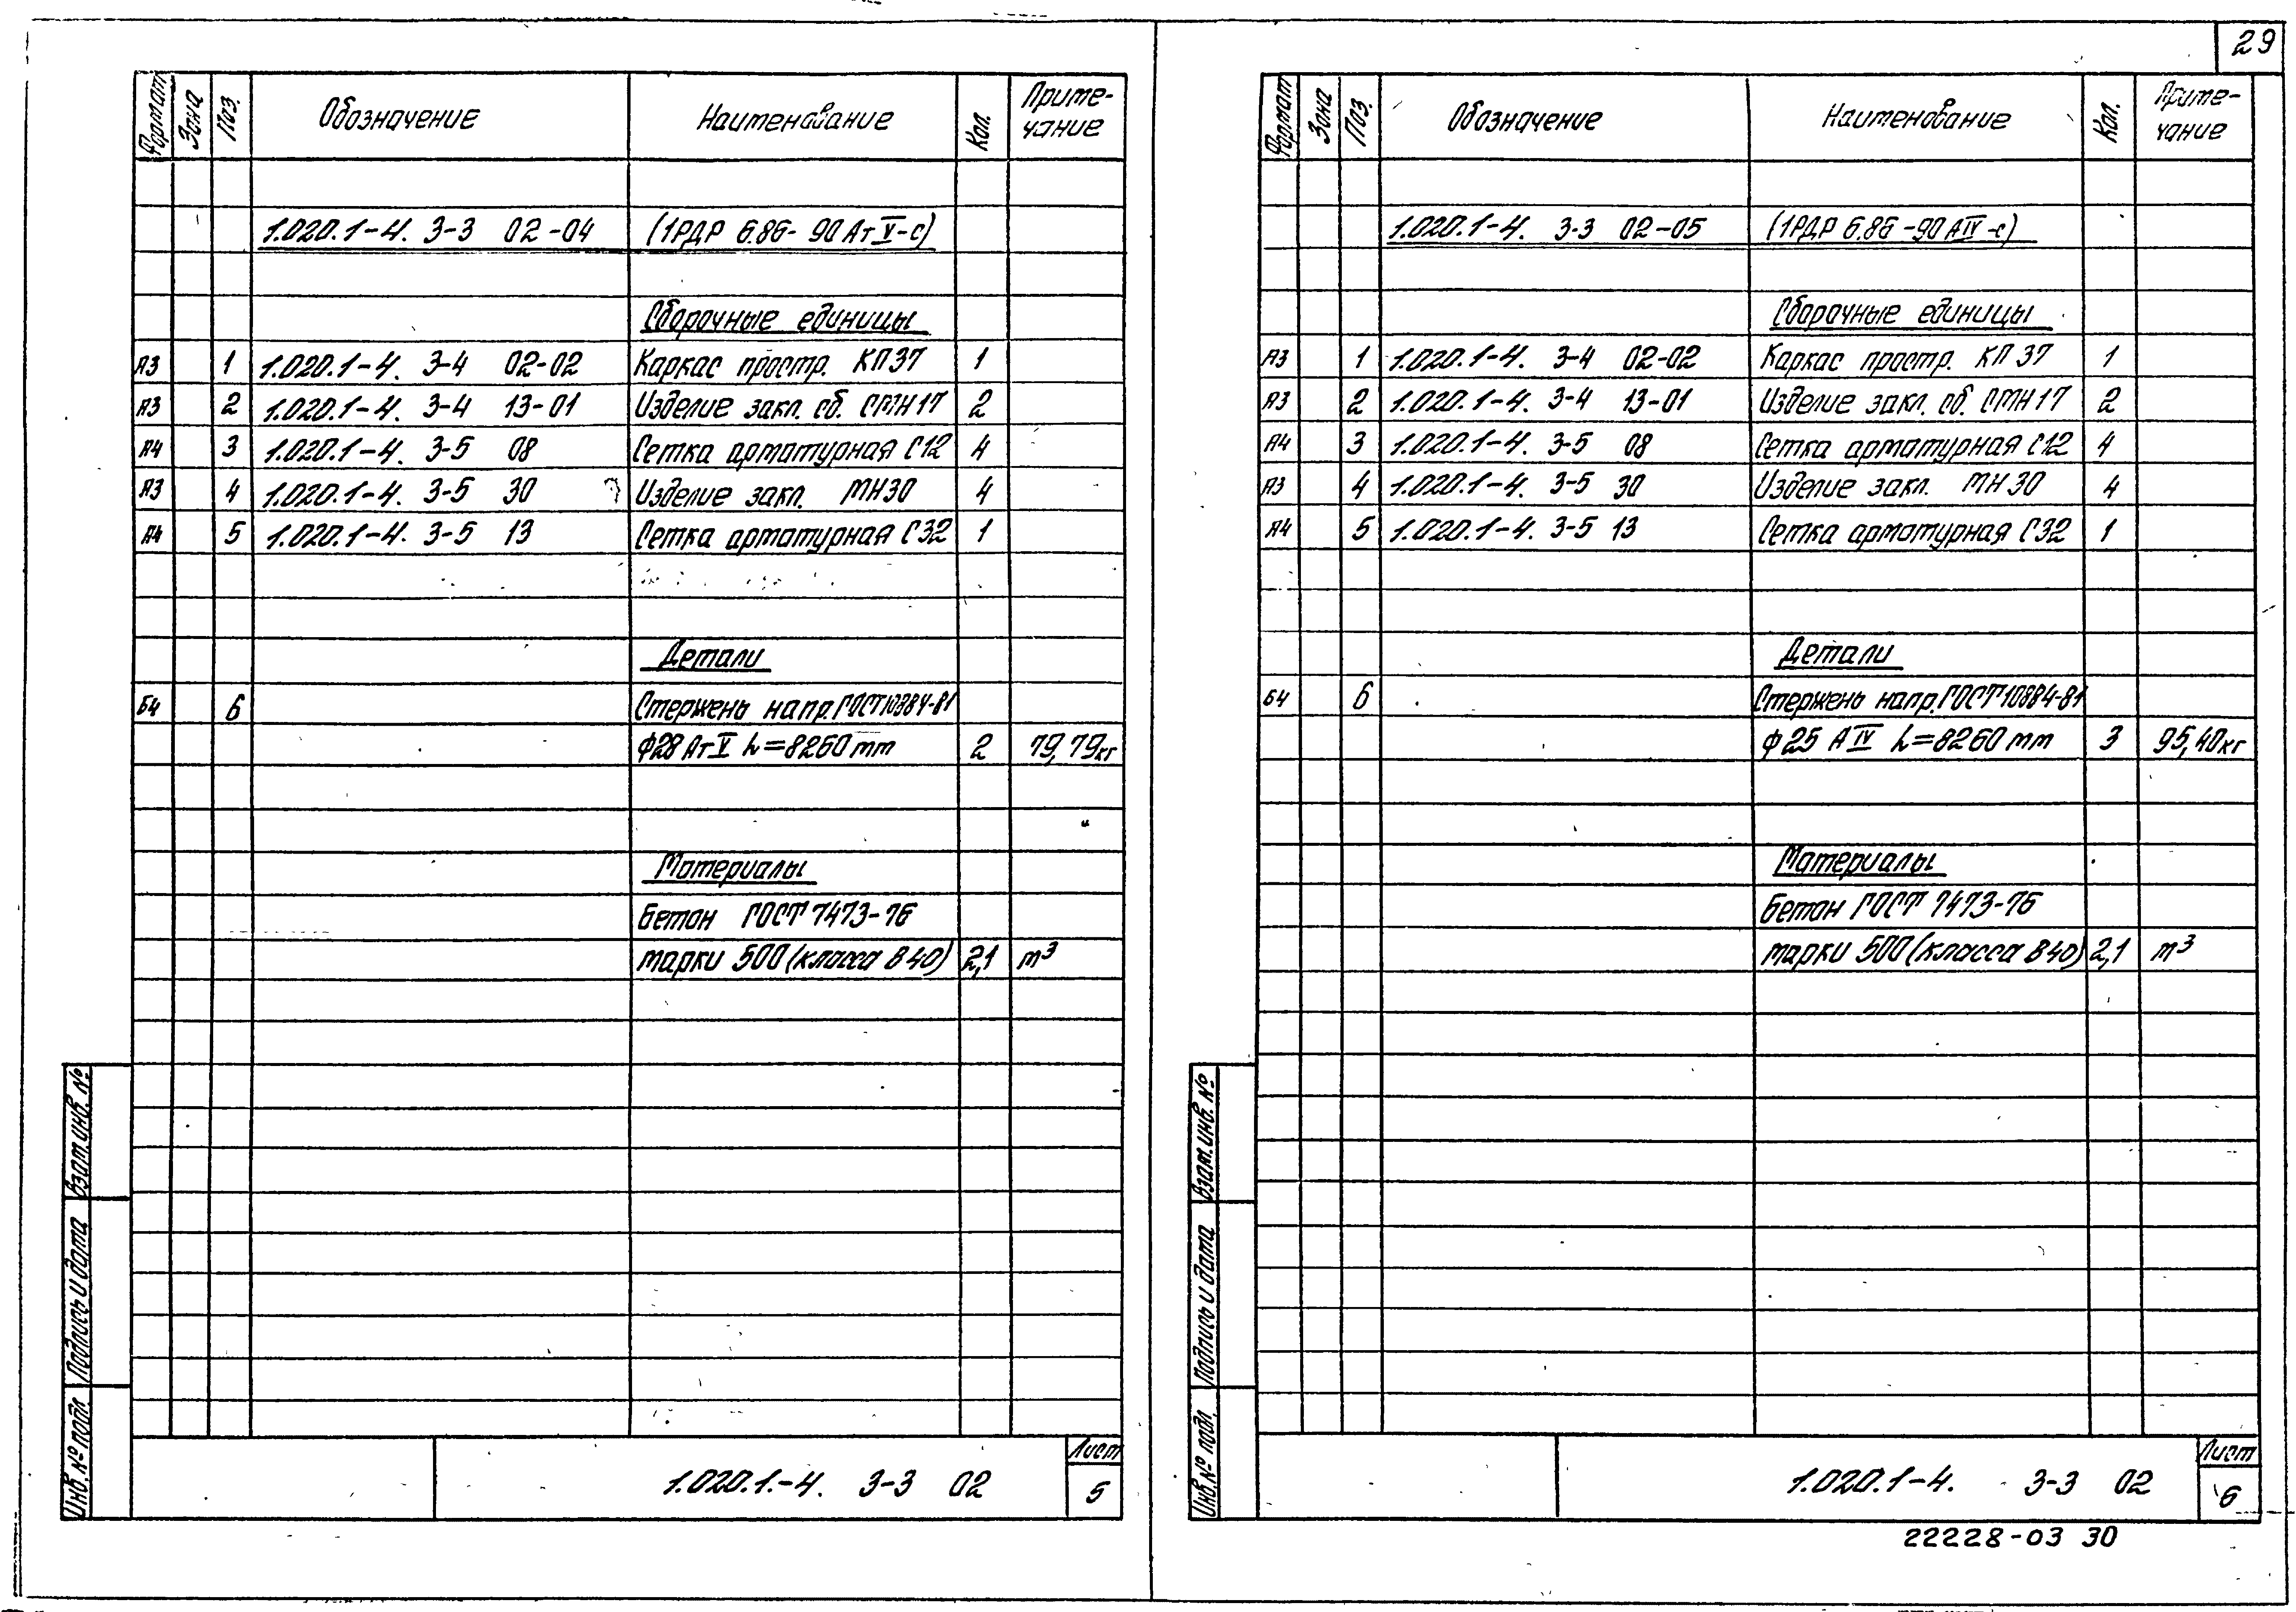 29
Формат Зона Поз. Обозначение Наименование Кол. Приме-
чание
1.020.1-4. 3-3 02-04 (1РДР 6.86-90 АтV-с)
Сборочные единицы
А3 1 1.020.1-4. 3-4 02-02 Каркас простр. КП37 1
А3 2 1.020.1-4. 3-4 13-01 Изделие закл. сб. СМН17 2
А4 3 1.020.1-4. 3-5 08 Сетка арматурная С12 4
А3 4 1.020.1-4. 3-5 30 Изделие закл. МН30 4
А4 5 1.020.1-4. 3-5 13 Сетка арматурная С32 1
Детали
Б4 6 Стержень напр. ГОСТ10884-81
ф28 АтV L=8260мм 2 79,79кг
Материалы
Бетон ГОСТ 7473-76
марки 500 (класса В40) 2,1 м³
Взам. инв. №
Подпись и дата
Инв. № подл
1.020.1-4. 3-3 02
Лист
5
Формат Зона Поз. Обозначение Наименование Кол. Приме-
чание
1.020.1-4. 3-3 02-05 (1РДР 6.86-90 АIV-с)
Сборочные единицы
А3 1 1.020.1-4. 3-4 02-02 Каркас простр. КП37 1
А3 2 1.020.1-4. 3-4 13-01 Изделие закл. сб. СМН17 2
А4 3 1.020.1-4. 3-5 08 Сетка арматурная С12 4
А3 4 1.020.1-4. 3-5 30 Изделие закл. МН30 4
А4 5 1.020.1-4. 3-5 13 Сетка арматурная С32 1
Детали
Б4 6 Стержень напр. ГОСТ10884-81
ф25 АIV L=8260мм 3 95,40кг
Материалы
Бетон ГОСТ 7473-76
марки 500 (класса В40) 2,1 м³
Взам. инв. №
Подпись и дата
Инв. № подл.
1.020.1-4. 3-3 02
Лист
6
22228-03 30